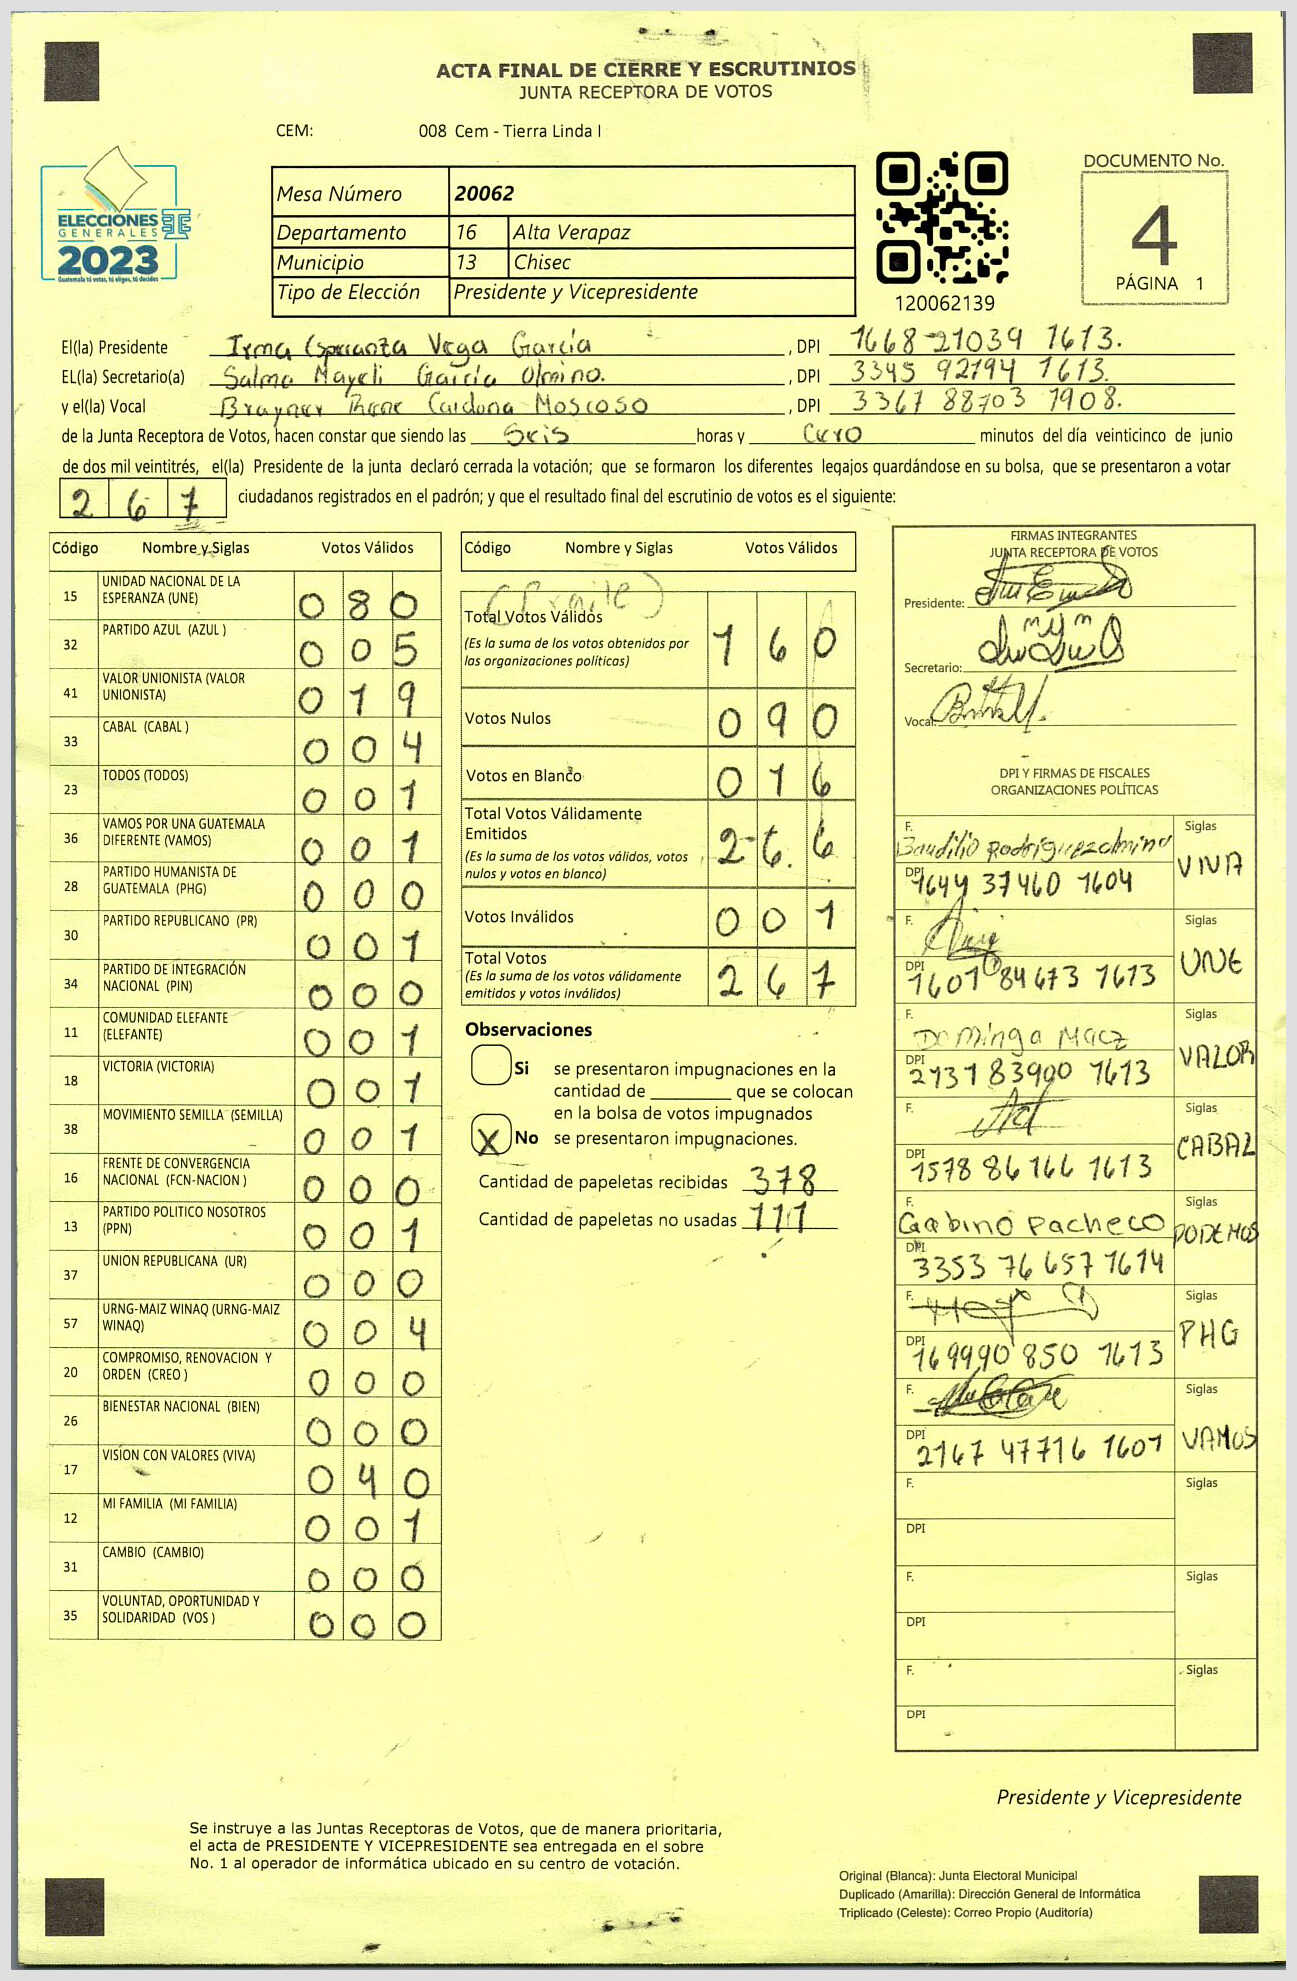 ACTA FINAL DE CIERRE Y ESCRUTINIOS
JUNTA RECEPTORA DE VOTOS
CEM: 008 Cem - Tierra Linda I
ELECCIONES
GENERALES
2023
Guatemala tú votas, tú eliges, tú decides
Mesa Número 20062
Departamento 16 Alta Verapaz
Municipio 13 Chisec
Tipo de Elección Presidente y Vicepresidente
120062139
DOCUMENTO No.
4
PÁGINA 1
El(la) Presidente Irma Esperanza Vega García , DPI 1668 21039 1613.
EL(la) Secretario(a) Salma Mayeli García Olmino. , DPI 3345 92194 1613.
y el(la) Vocal Brayner Rene Cardona Moscoso , DPI 3367 88703 1908.
de la Junta Receptora de Votos, hacen constar que siendo las Seis horas y Cero minutos del día veinticinco de junio
de dos mil veintitrés, el(la) Presidente de la junta declaró cerrada la votación; que se formaron los diferentes legajos guardándose en su bolsa, que se presentaron a votar
267 ciudadanos registrados en el padrón; y que el resultado final del escrutinio de votos es el siguiente:
Código Nombre y Siglas Votos Válidos
15 UNIDAD NACIONAL DE LA ESPERANZA (UNE) 080
32 PARTIDO AZUL (AZUL ) 005
41 VALOR UNIONISTA (VALOR UNIONISTA) 019
33 CABAL (CABAL ) 004
23 TODOS (TODOS) 001
36 VAMOS POR UNA GUATEMALA DIFERENTE (VAMOS) 001
28 PARTIDO HUMANISTA DE GUATEMALA (PHG) 000
30 PARTIDO REPUBLICANO (PR) 001
34 PARTIDO DE INTEGRACIÓN NACIONAL (PIN) 000
11 COMUNIDAD ELEFANTE (ELEFANTE) 001
18 VICTORIA (VICTORIA) 001
38 MOVIMIENTO SEMILLA (SEMILLA) 001
16 FRENTE DE CONVERGENCIA NACIONAL (FCN-NACION ) 000
13 PARTIDO POLITICO NOSOTROS (PPN) 001
37 UNION REPUBLICANA (UR) 000
57 URNG-MAIZ WINAQ (URNG-MAIZ WINAQ) 004
20 COMPROMISO, RENOVACION Y ORDEN (CREO ) 000
26 BIENESTAR NACIONAL (BIEN) 000
17 VISION CON VALORES (VIVA) 040
12 MI FAMILIA (MI FAMILIA) 001
31 CAMBIO (CAMBIO) 000
35 VOLUNTAD, OPORTUNIDAD Y SOLIDARIDAD (VOS ) 000
Código Nombre y Siglas Votos Válidos
Total Votos Válidos 160
(Es la suma de los votos obtenidos por
las organizaciones políticas)
Votos Nulos 090
Votos en Blanco 016
Total Votos Válidamente
Emitidos 266
(Es la suma de los votos válidos, votos
nulos y votos en blanco)
Votos Inválidos 001
Total Votos 267
(Es la suma de los votos válidamente
emitidos y votos inválidos)
Observaciones
Si se presentaron impugnaciones en la
cantidad de ________ que se colocan
en la bolsa de votos impugnados
X No se presentaron impugnaciones.
Cantidad de papeletas recibidas 378
Cantidad de papeletas no usadas 111
FIRMAS INTEGRANTES
JUNTA RECEPTORA DE VOTOS
Presidente:
Secretario:
Vocal:
DPI Y FIRMAS DE FISCALES
ORGANIZACIONES POLÍTICAS
F. Baudilio Rodriguez Siglas VIVA
DPI 1644 37460 1604
F. Siglas UNE
DPI 1601 84673 1613
F. Dominga Macz Siglas VALOR
DPI 2131 83900 1613
F. Siglas CABAL
DPI 1578 86166 1613
F. Gabino Pacheco Siglas PODEMOS
DPI 3353 76657 1614
F. Siglas PHG
DPI 169990 850 1613
F. Siglas VAMOS
DPI 2167 47716 1601
F. Siglas
DPI
F. Siglas
DPI
F. Siglas
DPI
Presidente y Vicepresidente
Se instruye a las Juntas Receptoras de Votos, que de manera prioritaria,
el acta de PRESIDENTE Y VICEPRESIDENTE sea entregada en el sobre
No. 1 al operador de informática ubicado en su centro de votación.
Original (Blanca): Junta Electoral Municipal
Duplicado (Amarilla): Dirección General de Informática
Triplicado (Celeste): Correo Propio (Auditoría)